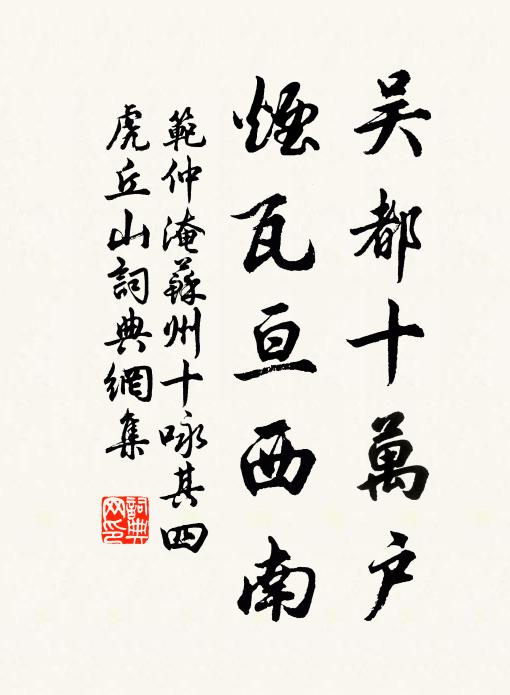 吴都十萬户
煙瓦亘西南
範仲淹蘇州十咏其四
虎丘山詞典網集
詞典网印